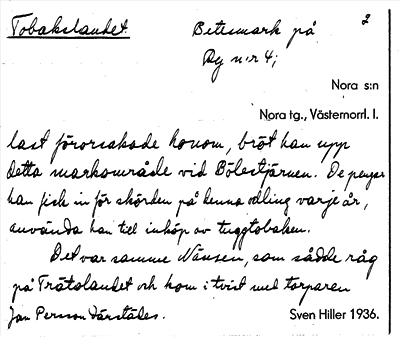 Tobakslandet Betesmark på 2
By n:r 4;
Nora s:n
Nora tg., Västernorrl. l.
last förorsakade honom, bröt han upp
detta markområde vid Bölestjärnen. De pengar
han fick in för skörden på denna odling varje år,
använda han till inköp av tuggtobaken.
Det var samme Nänsen, som sådde råg
på Trätolandet och kom i tvist med torparen
Jan Persson Värståles.
Sven Hiller 1936.